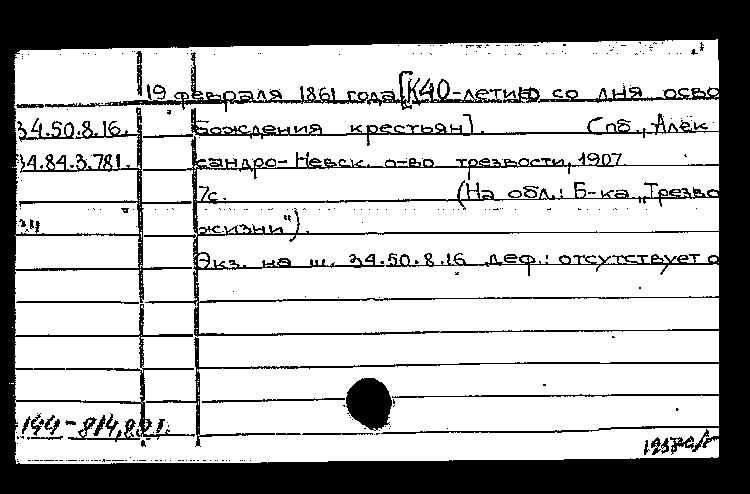 19 февраля 1861 года [К 40-летию со дня осво
34.50.8.16. бождения крестьян]. Спб., Алек
34.84.3.781. сандро-Невск. о-во трезвости, 1907
7с. (На обл.: Б-ка „Трезво
34 жизни").
Экз. на ш. 34.50.8.16 деф.: отсутствует о
144-814,80г.